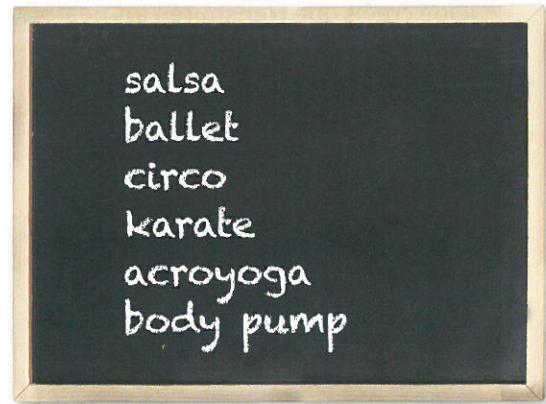 salsa
ballet
circo
karate
acroyoga
body pump